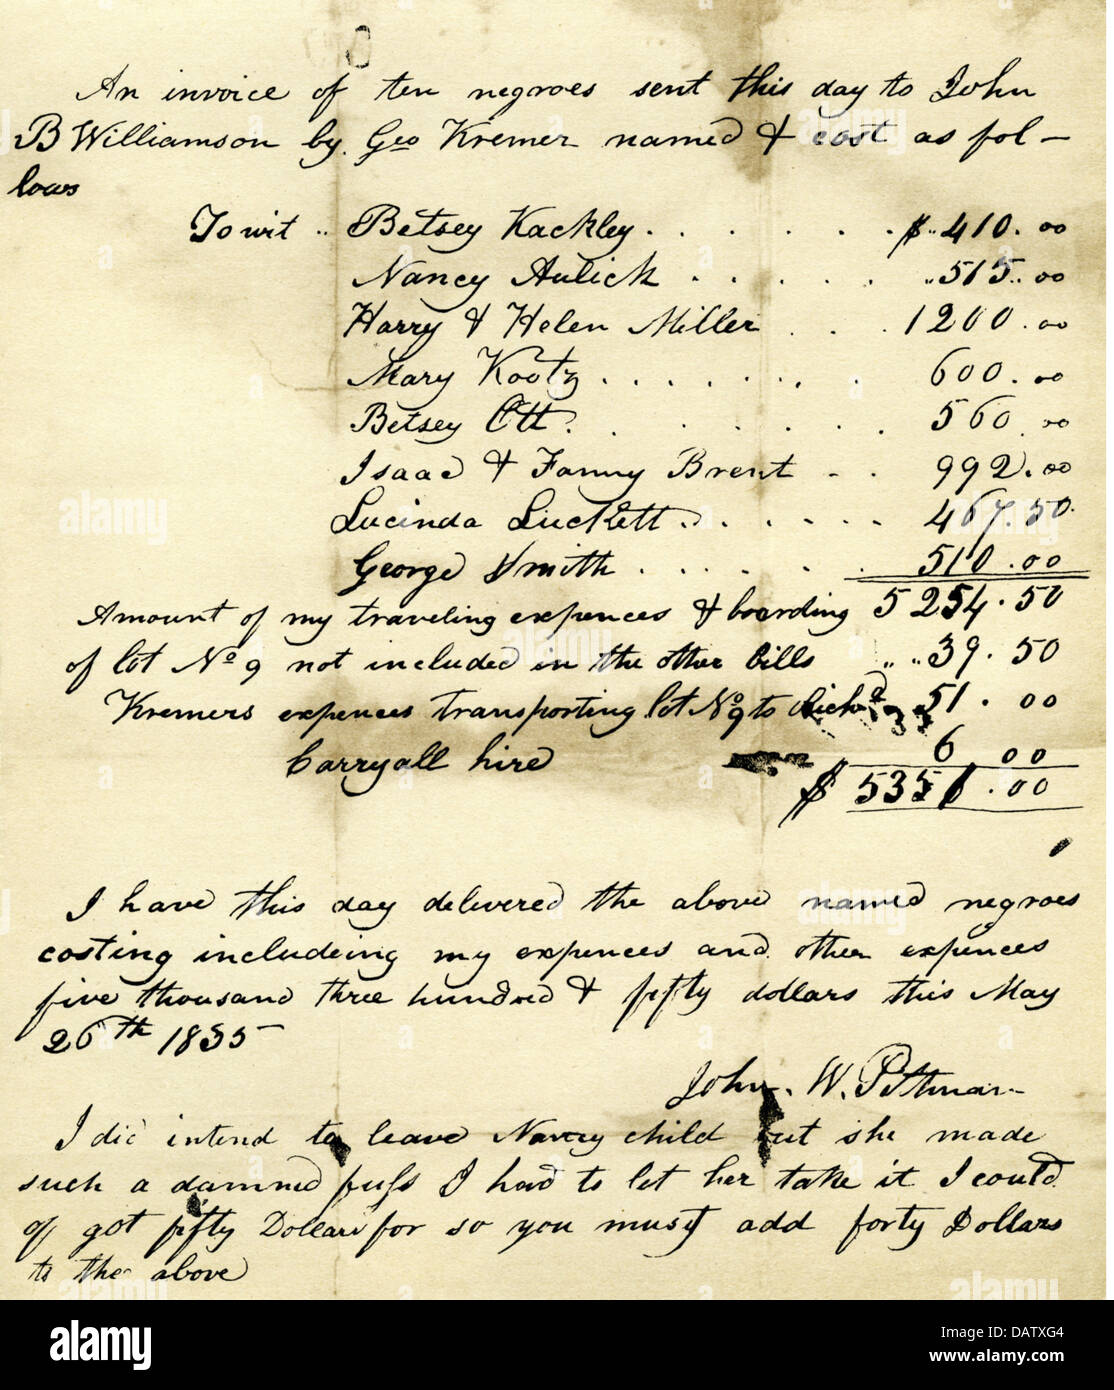 An invoice of ten negroes sent this day to John
B Williamson by Geo Kremer named & cost as fol-
lows
To wit .. Betsey Kackley . . . . . . $..410.00
Nancy Aulick . . . . . ..515..00
Harry & Helen Miller . . . 1200.00
Mary Kootz . . . . . . . . 600.00
Betsey Ott . . . . . . . 560.00
Isaac & Fanny Brent . . 992.00
Lucinda Luckett . . . . . . . 467.50
George Smith . . . . . . 510.00
Amount of my traveling expences & boarding 5254.50
of lot No 9 not included in the other bills ....39.50
Kremers expences transporting lot No 9 to 51.00
Carryall hire 6 00
$ 5351.00
I have this day delivered the above named negroes
costing includeing my expences and other expences
five thousand three hundred & fifty dollars this May
26th 1835
John. W. Pittman
I did intend to leave Nancy child but she made
such a damned fuss I had to let her take it I could
of got fifty Dollars for so you must add forty Dollars
to the above
alamy
Image ID: DATXG4
www.alamy.com